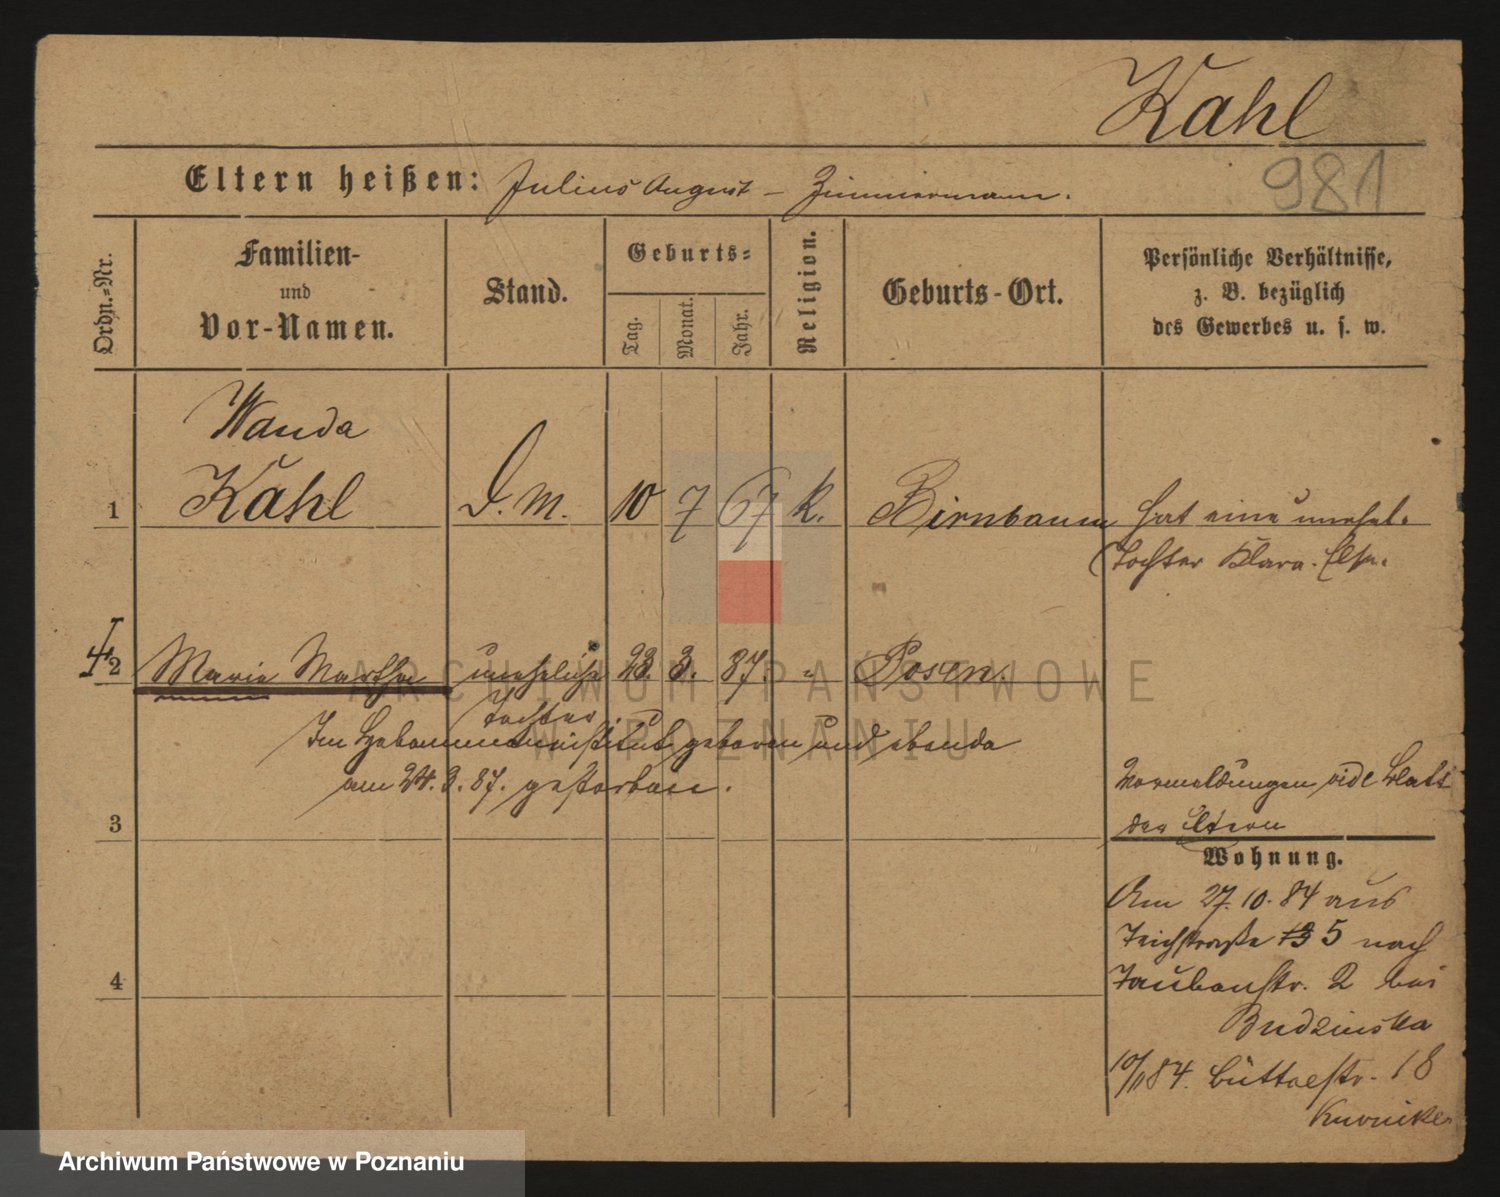 Kahl
981
Eltern heißen: Julius August – Zimmermann.
Ordn.-Nr.
Familien-
und
Vor-Namen.
Stand.
Geburts-
Tag.
Monat.
Jahr.
Religion.
Geburts-Ort.
Persönliche Verhältnisse,
z. B. bezüglich
des Gewerbes u. s. w.
Wanda
1 Kahl D. M. 10 7 67 K. Birnbaum hat eine unehel.
Tochter Klara Else.
2 Marie Martha uneheliche 23. 3. 87. " Posen.
Tochter
Im Hebammeninstitut geboren und ebenda
am 24. 3. 87. gestorben.
Vormeldungen vide Blatt
der Eltern
3
Wohnung.
Am 27. 10. 84 aus
Teichstraße 5 nach
4 Taubenstr. 2 bei
Budzinska
10/11 84. Büttelstr. 18
ARCHIWUM PAŃSTWOWE
W POZNANIU
Archiwum Państwowe w Poznaniu